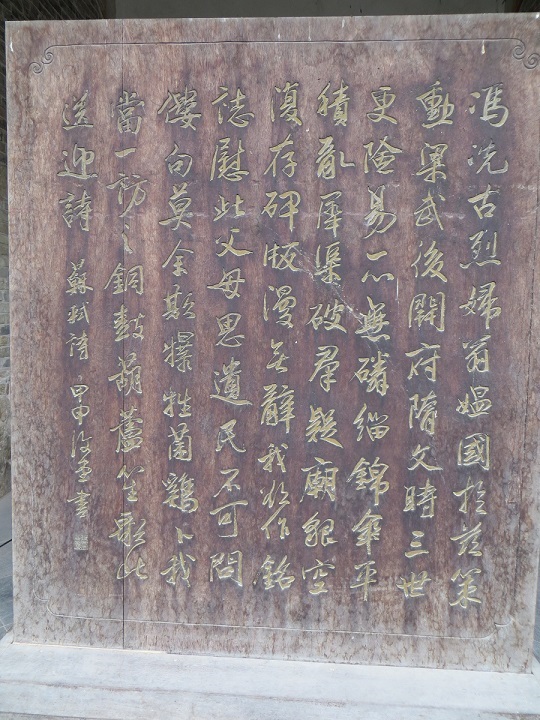 馮冼古烈婦翁媼國於茲策
勳梁武後開府隋文時三世
更險易一心無磷緇錦傘平
積亂犀渠破羣疑廟貌空
復存碑版漫無辭我欲作銘
誌慰此父母思遺民不可問
僂句莫余欺犦牲菌鷄卜我
當一訪之銅鼓葫蘆笙歌此
送迎詩 蘇軾詩 甲申書